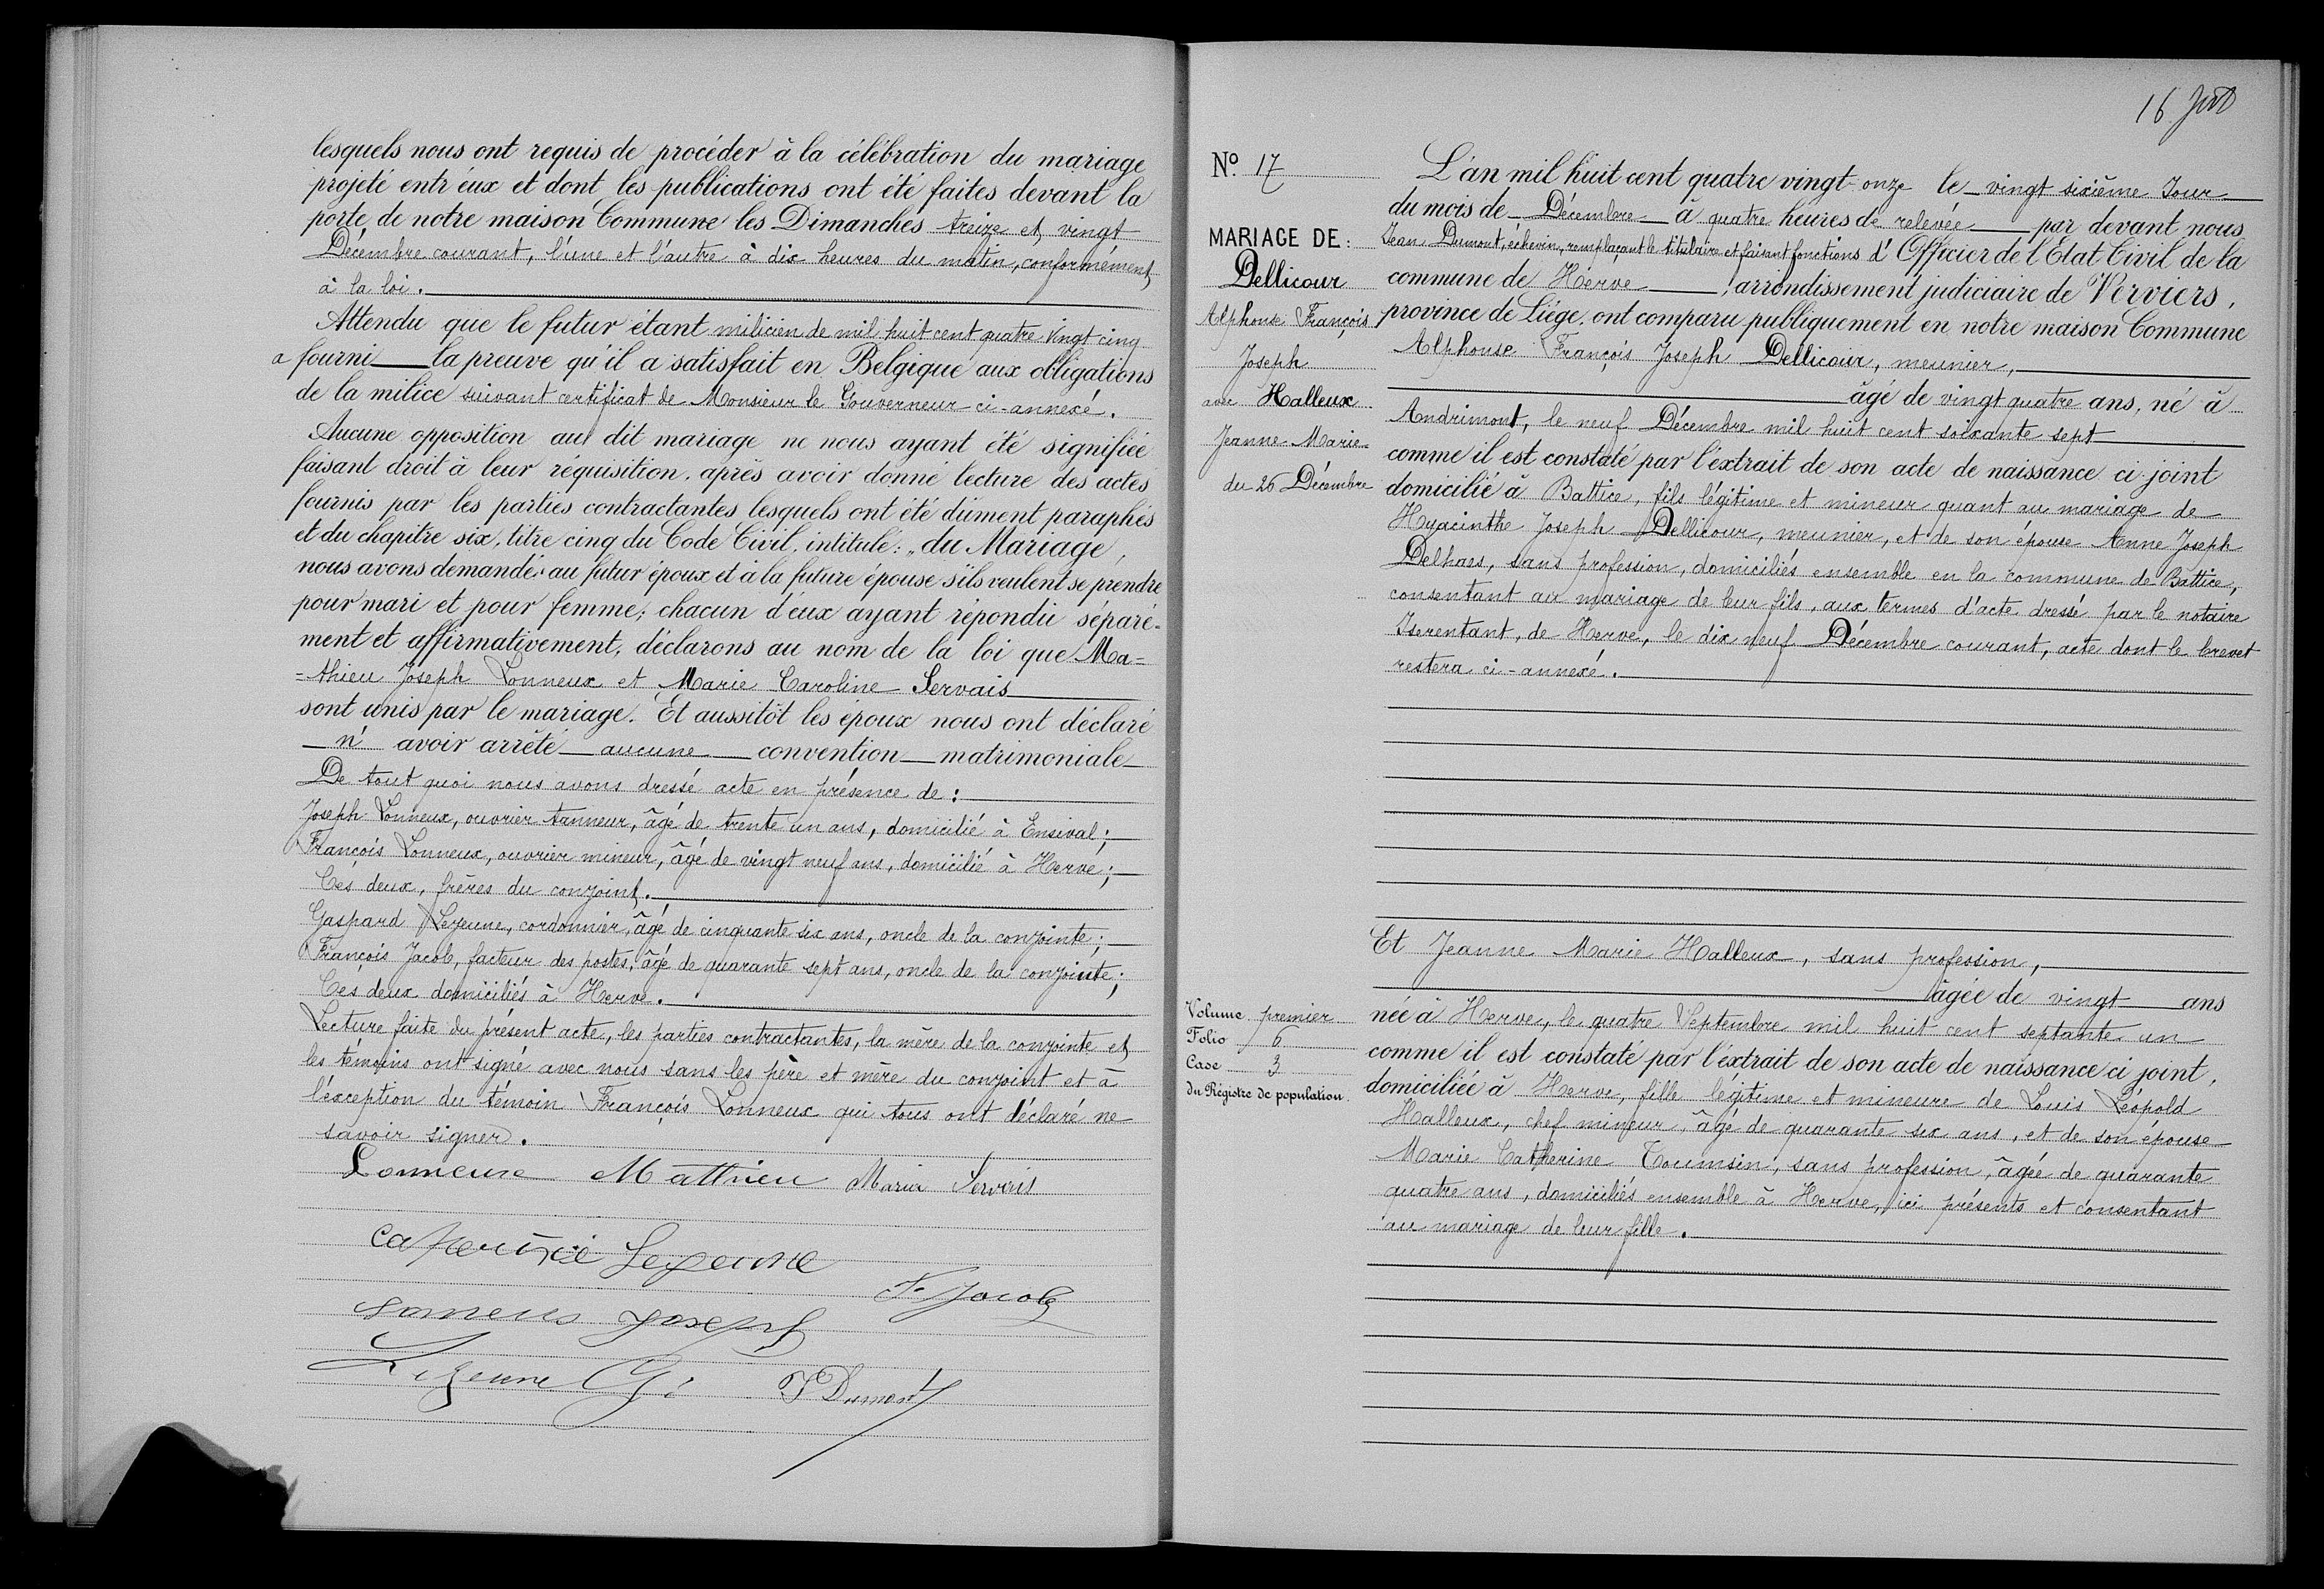 lesquels nous ont requis de procéder à la célébration du mariage
projeté entr'eux et dont les publications ont été faites devant la
porte de notre maison Commune les Dimanches treize et vingt
Décembre courant, l'une et l'autre à dix heures du matin, conformément
à la loi.
Attendu que le futur étant milicien de mil huit cent quatre vingt cinq
a fourni la preuve qu'il a satisfait en Belgique aux obligations
de la milice suivant certificat de Monsieur le Gouverneur ci-annexé.
Aucune opposition au dit mariage ne nous ayant été signifiée
faisant droit à leur réquisition, après avoir donné lecture des actes
fournis par les parties contractantes lesquels ont été dûment paraphés
et du chapitre six, titre cinq du Code Civil, intitulé: „du Mariage,
nous avons demandé: au futur époux et à la future épouse s'ils veulent se prendre
pour mari et pour femme; chacun d'eux ayant répondu séparé-
ment et affirmativement, déclarons au nom de la loi que Ma=
=thieu Joseph Lonneux et Marie Caroline Servais
sont unis par le mariage. Et aussitôt les époux nous ont déclaré
n' avoir arrêté aucune convention matrimoniale
De tout quoi nous avons dressé acte en présence de :
Joseph Lonneux, ouvrier tanneur, âgé de trente un ans, domicilié à Ensival;
François Lonneux, ouvrier mineur, âgé de vingt neuf ans, domicilié à Herve;
Ces deux, frères du conjoint.
Gaspard Lejeune, cordonnier, âgé de cinquante six ans, oncle de la conjointe;
François Jacob, facteur des postes, âgé de quarante sept ans, oncle de la conjointe;
Ces deux domiciliés à Herve.
Lecture faite du présent acte, les parties contractantes, la mère de la conjointe et
les témoins ont signé avec nous sans les père et mère du conjoint et à
l'exception du témoin François Lonneux qui tous ont déclaré ne
savoir signer.
Lonneux Mathieu Maria Servais
Catherine Lejeune
F. Jacob
Lonneux Joseph
Lejeune G J Dumont
16
N.º 17
MARIAGE DE:
Dellicour
Alphonse François
Joseph
avec Halleux
Jeanne Marie
du 26 Décembre
L'an mil huit cent quatre vingt onze le vingt sixième Jour
du mois de Décembre à quatre heures de relevée par devant nous
Jean Dumont, échevin, remplaçant le titulaire et faisant fonctions d'Officier de l'Etat Civil de la
commune de Herve, arrondissement judiciaire de Verviers,
province de Liége, ont comparu publiquement en notre maison Commune
Alphonse François Joseph Dellicour, meunier,
âgé de vingt quatre ans, né à
Andrimont, le neuf Décembre mil huit cent soixante sept
comme il est constaté par l'extrait de son acte de naissance ci joint
domicilié à Battice, fils légitime et mineur quant au mariage de
Hyacinthe Joseph Dellicour, meunier, et de son épouse Anne Joseph
Delhaes, sans profession, domiciliés ensemble en la commune de Battice,
consentant au mariage de leur fils, aux termes d'acte dressé par le notaire
Iserentant, de Herve, le dix neuf Décembre courant, acte dont le brevet
restera ci-annexé.
Et Jeanne Marie Halleux, sans profession,
âgée de vingt ans
née à Herve, le quatre Septembre mil huit cent septante un
comme il est constaté par l'extrait de son acte de naissance ci joint,
domiciliée à Herve, fille légitime et mineure de Louis Léopold
Halleux, chef mineur, âgé de quarante six ans, et de son épouse
Marie Catherine Toumsin, sans profession, âgée de quarante
quatre ans, domiciliés ensemble à Herve, ici présents et consentant
au mariage de leur fille.
Volume premier
Folio 6
Case 3
du Régistre de population.